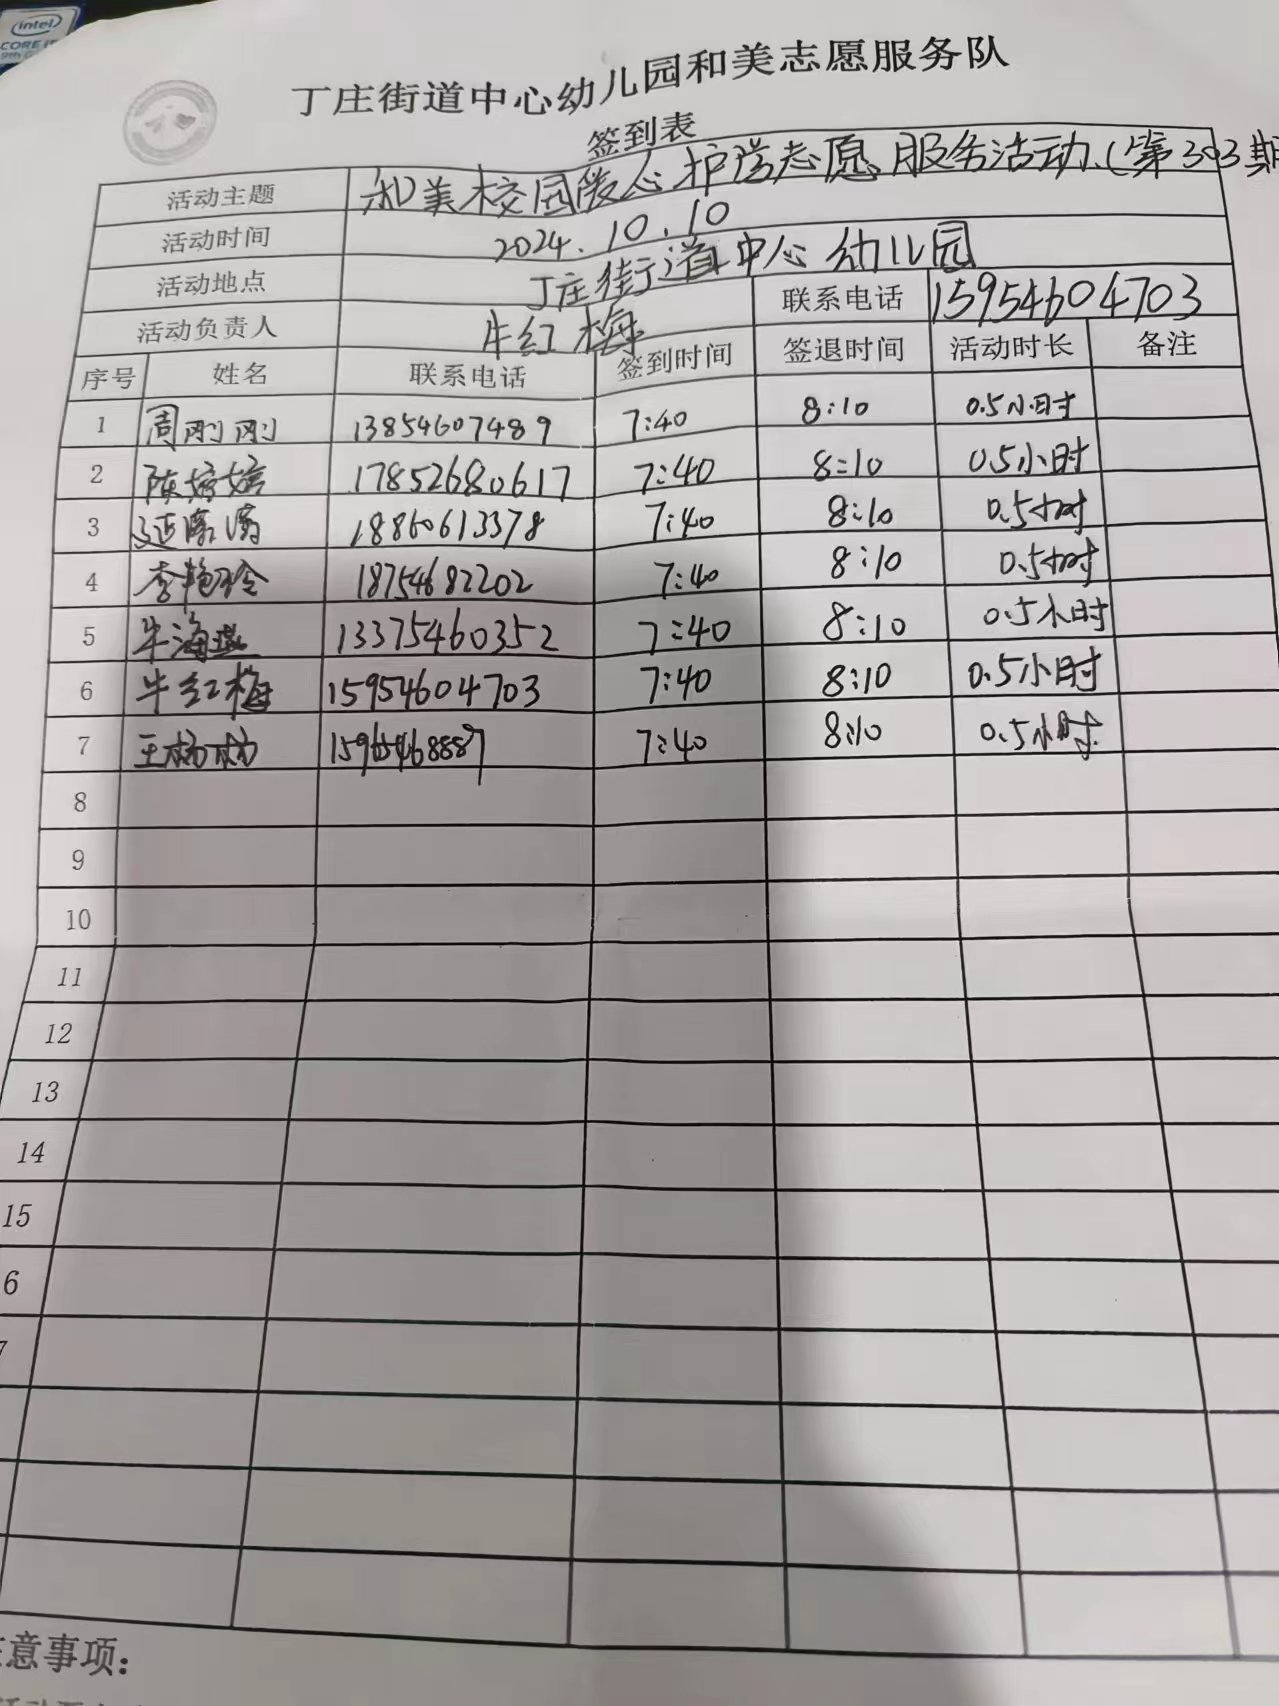 intel
CORE i5
9th
丁庄街道中心幼儿园和美志愿服务队
签到表
活动主题 和美校园暖心护学志愿服务活动(第303期
活动时间 2024.10.10
活动地点 丁庄街道中心幼儿园
活动负责人 牛红梅 联系电话 15954604703
序号 姓名 联系电话 签到时间 签退时间 活动时长 备注
1 周刚刚 13854607489 7:40 8:10 0.5小时
2 陈婷婷 17852680617 7:40 8:10 0.5小时
3 18860613378 7:40 8:10 0.5小时
4 李艳玲 18754682202 7:40 8:10 0.5小时
5 牛海燕 13375460352 7:40 8:10 0.5小时
6 牛红梅 15954604703 7:40 8:10 0.5小时
7 王杨杨 7:40 8:10 0.5小时
8
9
10
11
12
13
14
15
6
7
意事项: